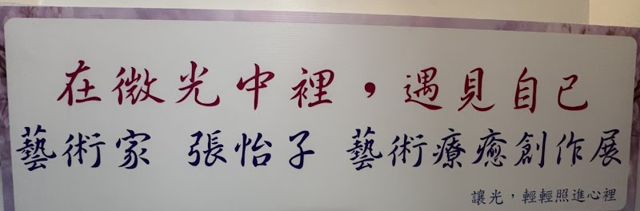 在微光中裡，遇見自己
藝術家 張怡子 藝術療癒創作展
讓光，輕輕照進心裡